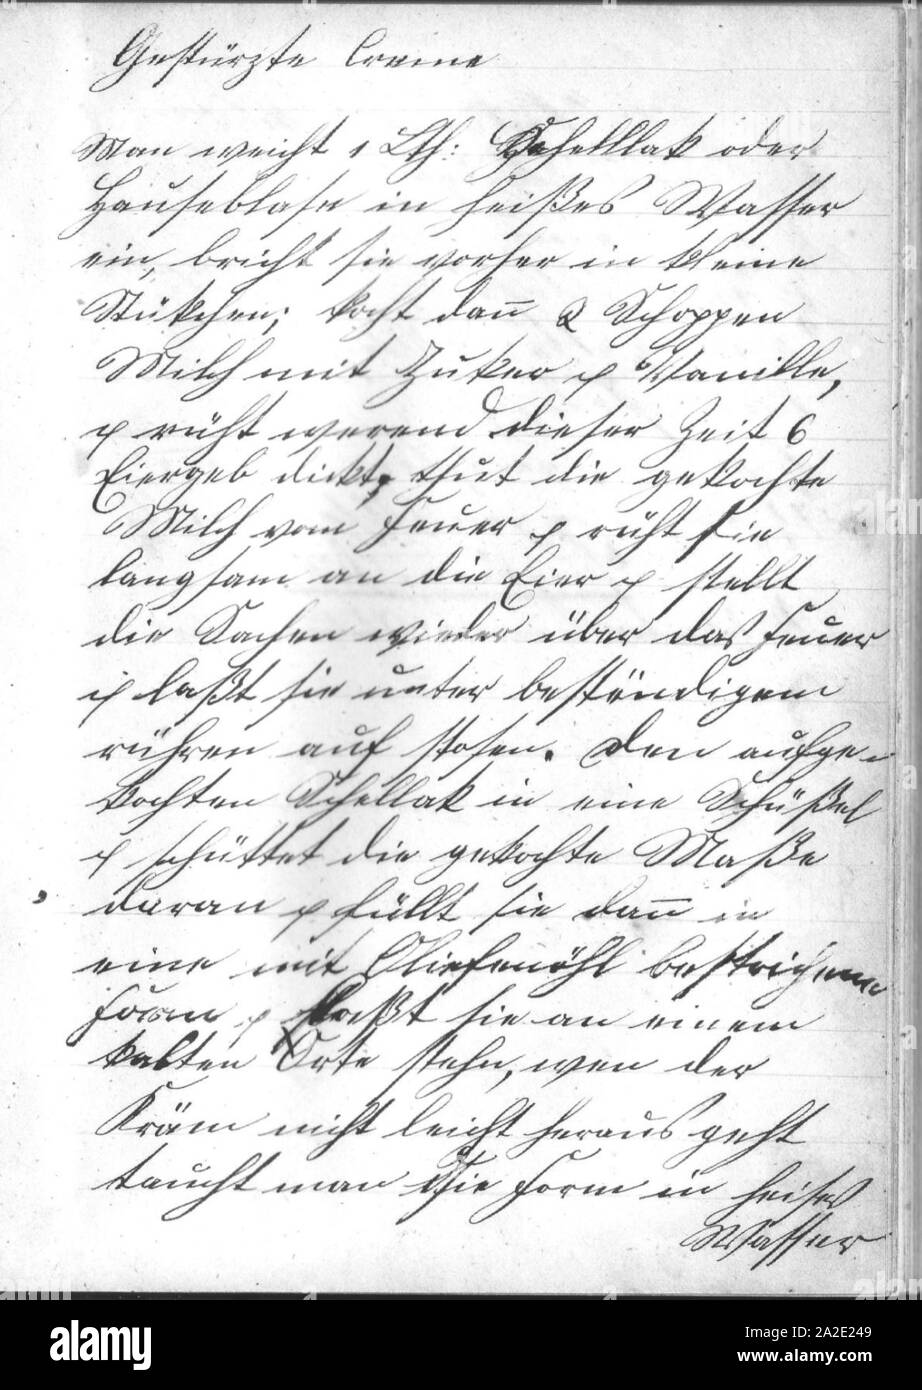 Gestürzte Creme
Man weicht 1 Lth: Schelllak oder
Hauseblase in heißes Wasser
ein, bricht sie vorher in kleine
Stükchen; kocht dan̄ 2 Schoppen
Milch mit Zuker & Vanille,
& rüht werend dieser Zeit 6
Eiergeb dickt, thut die gekochte
Milch vom Feuer & rüht sie
langsam an die Eier & stellt
die Sachen wieder über das Feuer
& laßt sie unter beständigem
rühren auf stosen. Den aufge-
kochten Schellak in eine Schüßel
& schüttet die gekochte Maße
daran & füllt sie dan̄ in
eine mit Oliefenöhl bestrichene
Form & laßt sie an einem
kalten Orte stehn, wen der
Kräm nicht leicht heraus geht
taucht man die Form in heises
Wasser
alamy
Image ID: 2A2E249
www.alamy.com